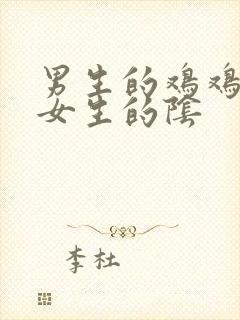 男生的鸡鸡
女生的陰
李杜